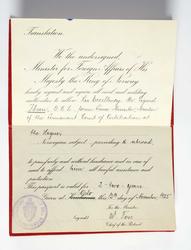 Translation.
We the undersigned,
Minister for Foreign Affairs of His
Majesty the King of Norway
hereby request and require all civil and military
authorities to allow His Excellency Mr. Sigurd
Ibsen, G.C.B., former Prime Minister, Member
of the Permanent Court of Arbitration at
the Hague,
Norwegian subject, proceeding to abroad,
to pass freely and without hindrance and in case of
need to afford him all lawful assistance and
protection.
This passport is valid for 2 - two - years
Given at Oslo this day of 1925
For the Minister
signed: